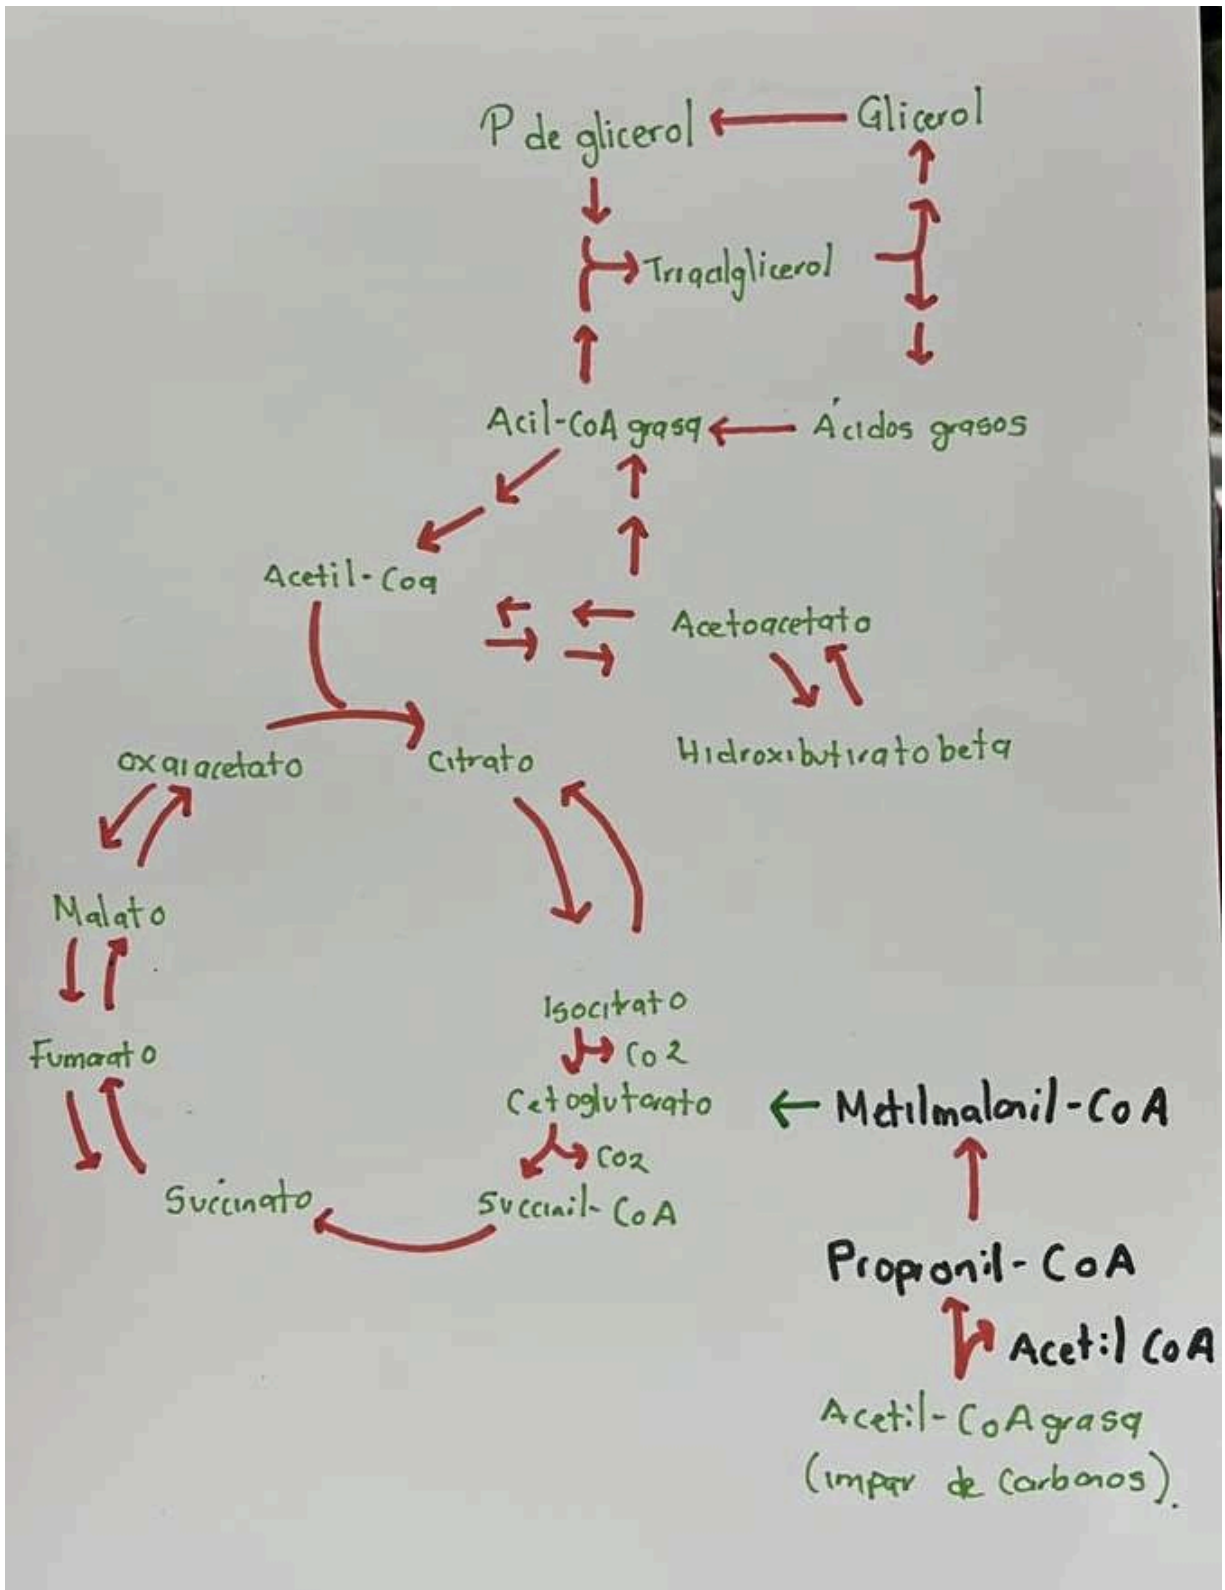 P de glicerol
Glicerol
Triqalglicerol
Acil-CoA grasa
Ácidos grasos
Acetil-Coa
Acetoacetato
Oxaiacetato
Citrato
Hidroxibutirato beta
Malato
Isocitrato
Co2
Fumarato
Cetoglutarato
Metilmalonil-CoA
CO2
Succinato
Succinil-CoA
Propionil-CoA
Acetil CoA
Acetil-CoA grasa
(impar de carbonos).